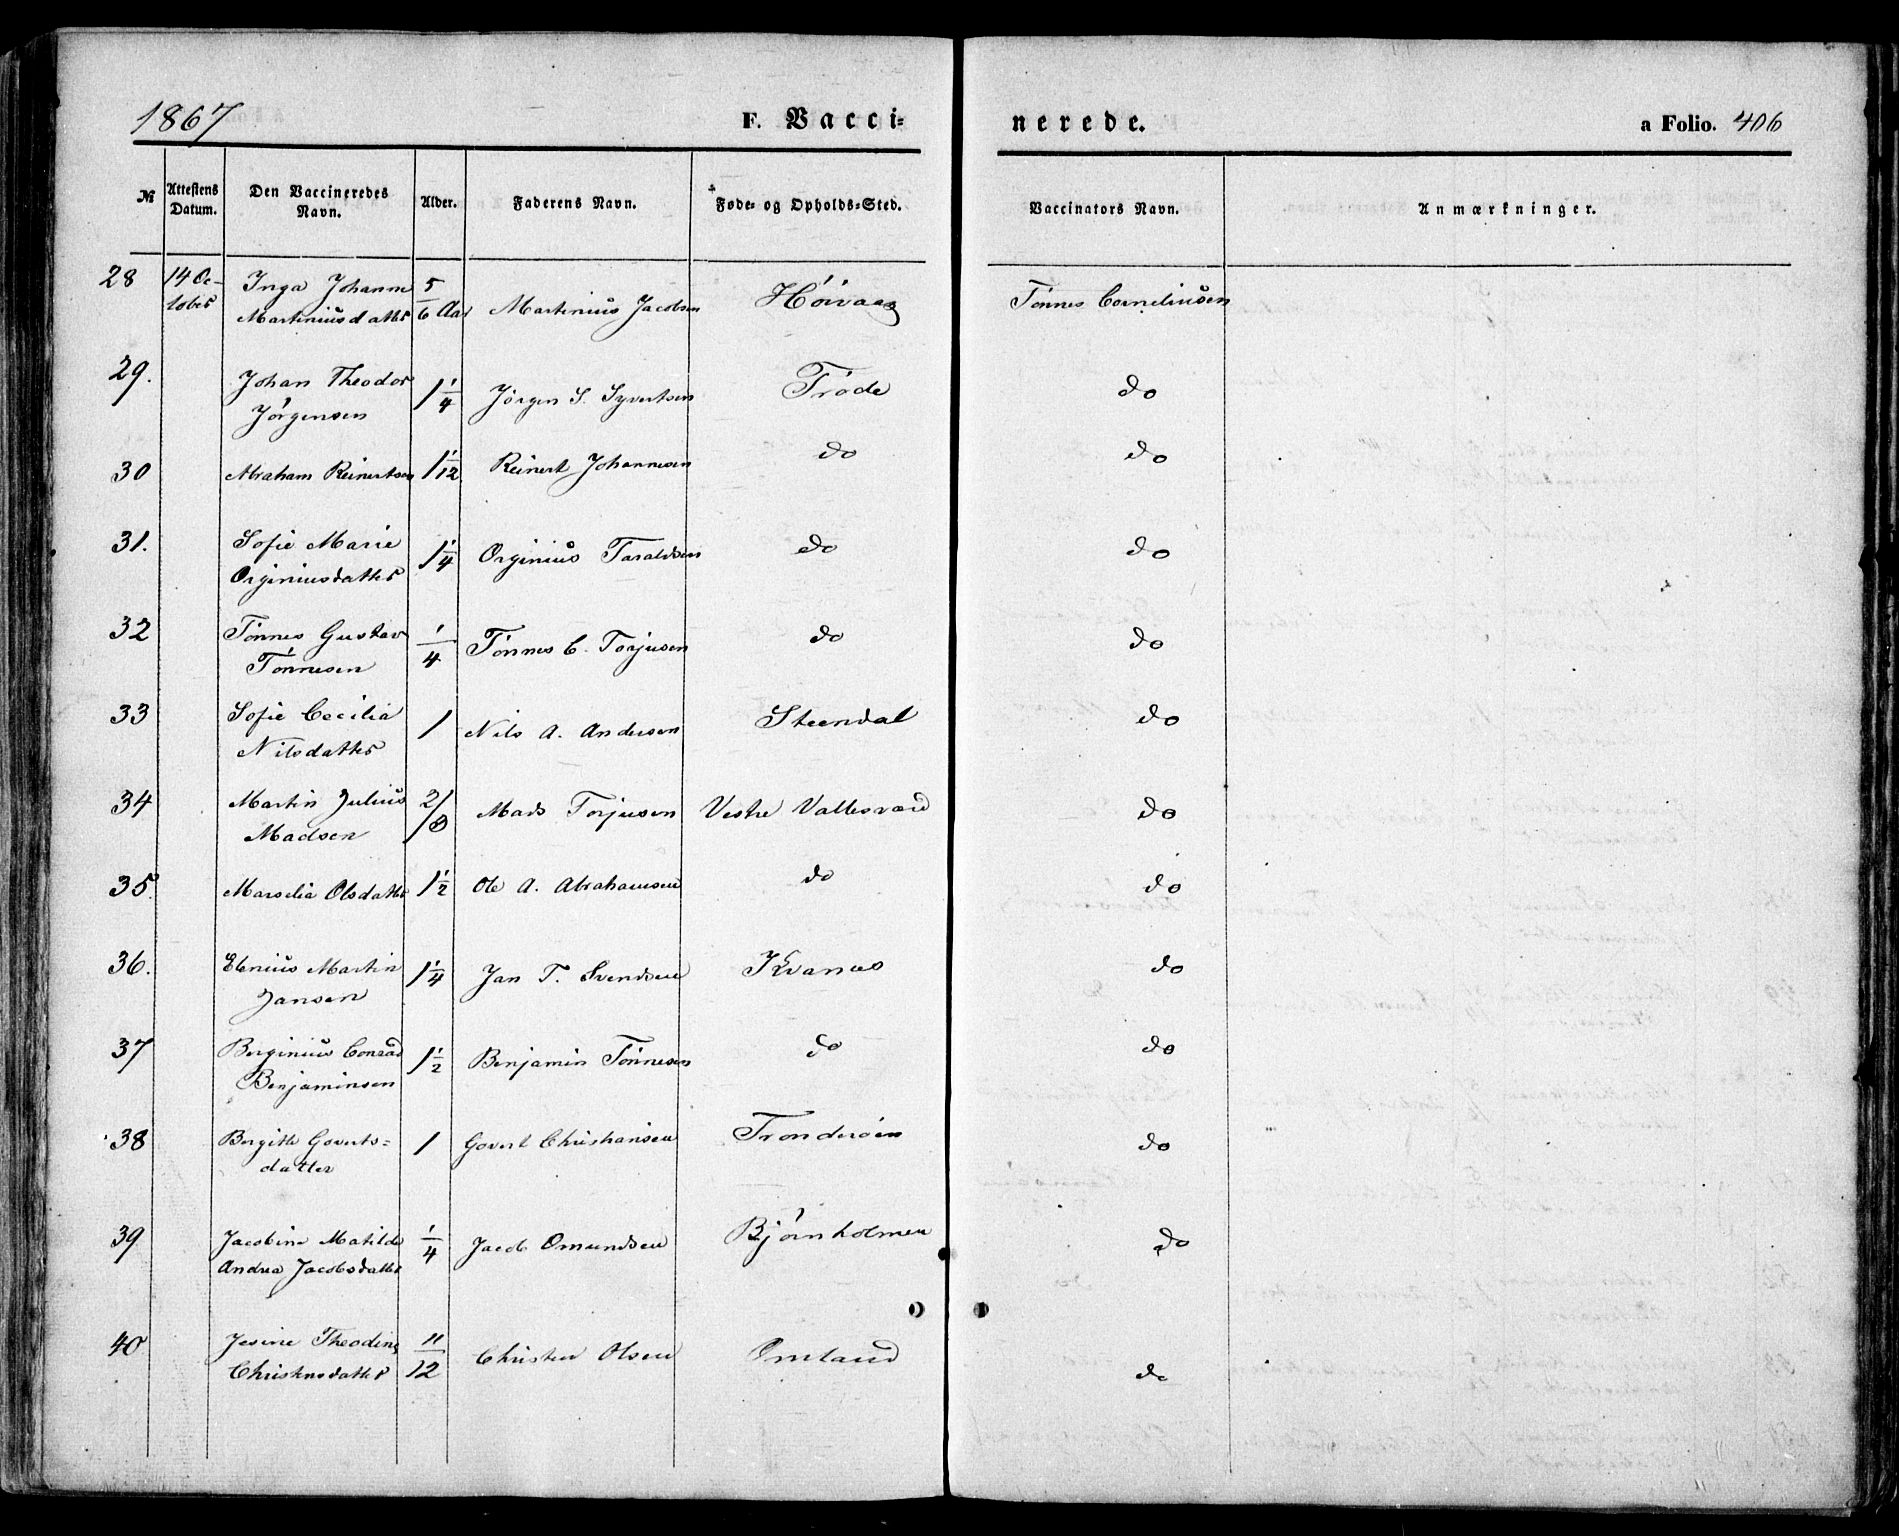 1867 F. Vacci= nerede. a Folio. 406
№ Attestens Datum. Den Vaccineredes Navn. Alder. Faderens Navn. Føde- og Opholds-Sted. Vaccinators Navn. Anmærkninger.
28 14 Oc- Inga Johanne 5
tober Martiniusdatter 6 Aar Martinius Jacobsen Höivaag Tönnes Corneliusen
29. Johan Theodor 1 1/4 Jörgen S. Syvertsen Tröde do
Jörgensen
30 Abraham Reinertsen 1 1/12 Reinert Johannesen do do
31. Sofie Marie 1 1/4 Orginius Taraldsen do do
Orginiusdatter
32 Tönnes Gustav 1/4 Tönnes C. Torjusen do do
Tönnesen
33 Sofie Cecilia 1 Nils A. Andersen Steendal do
Nilsdatter
34 Martin Julius 2/3 Mads Torjusen Vestre Vallesværd do
Madsen
35. Marselia Olsdatter 1 1/2 Ole A. Abrahamsen do do
36. Elenius Martin 1 1/4 Jan T. Svendsen Kvanes do
Jansen
37 Berginius Conrad 1 1/2 Benjamin Tönnesen do do
Benjaminsen
38 Bergitte Goverts= 1 Govert Christiansen Tronderöen do
datter
39 Jacobine Matilde 1/4 Jacob Omundsen Björnholmen do
Andrea Jacobsdatter
40 Jesine Theodine 11/12 Christen Olsen Omland do
Christensdatter